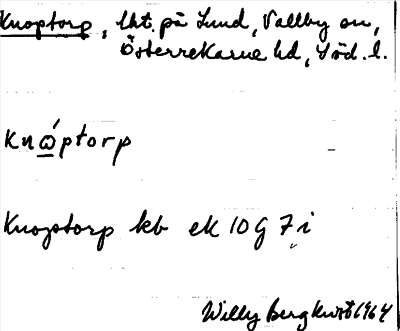 Knoptorp, lht. på Lund, Vallby sn,
Österrekarne hd, Söd. l.
knǫ́ptorp
Knoptorp kb ek 10 G 7 i
Willy Bergkvist 1964